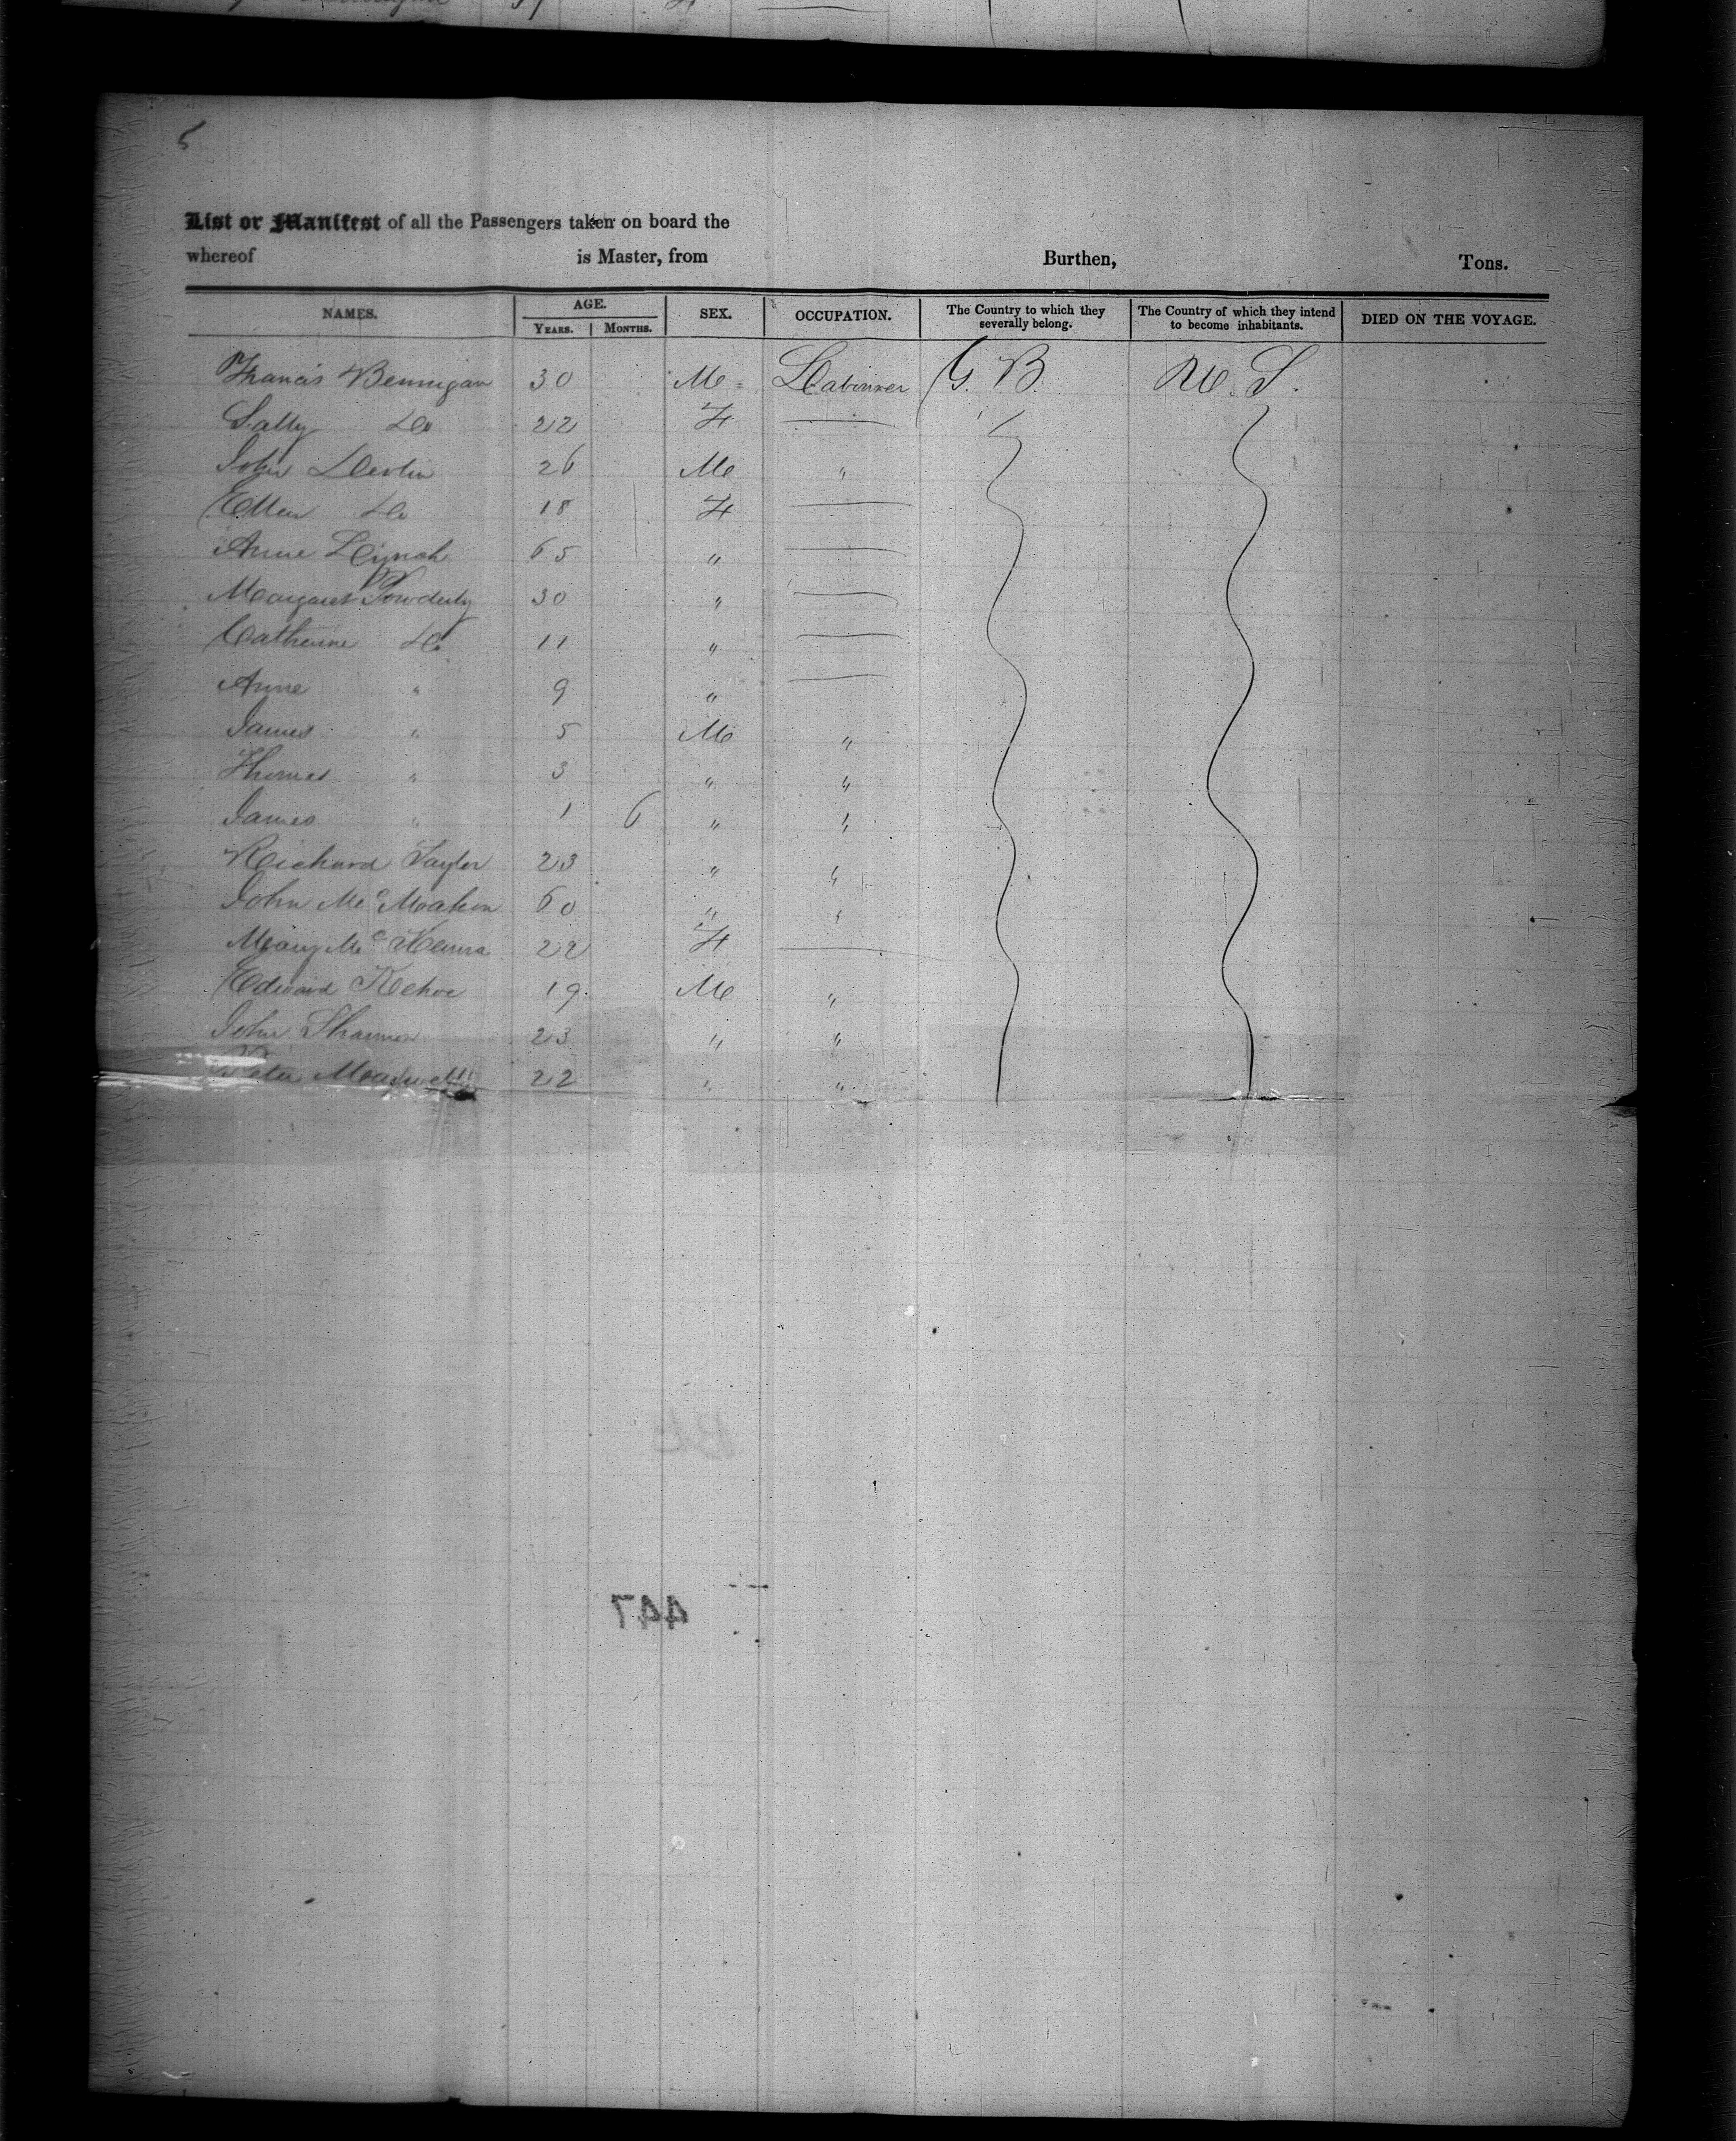 5
List or Manifest of all the Passengers taken on board the
whereof is Master, from Burthen, Tons.
NAMES. AGE. SEX. OCCUPATION. The Country to which they severally belong. The Country of which they intend to become inhabitants. DIED ON THE VOYAGE.
YEARS. MONTHS.
Francis Bennigan 30 M Labourer G. B. U. S.
Sally Do 22 F
John Devlin 26 M "
Ellen Do 18 F
Anne Lynch 65 "
Margaret Powderly 30 "
Catherine Do 11 "
Anne " 9 "
James " 5 M "
Thomas " 3 " "
James " 1 6 " "
Richard Taylor 23 " "
John McMahon 60 " "
Mary McKenna 22 F
Edward Kehoe 19 M "
John Shannon 23 " "
Peter Maxwell 22 " "
447